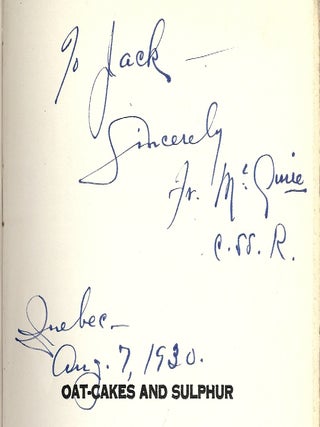 To Jack —
Sincerely
Fr. McGuire
C.SS.R.
Quebec —
Aug. 7, 1930.
OAT-CAKES AND SULPHUR